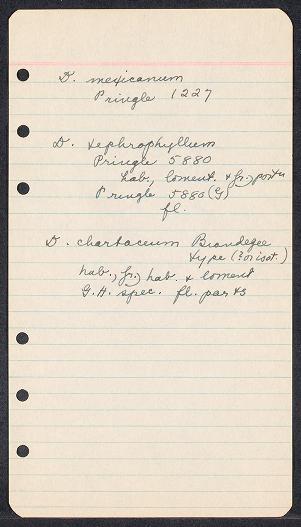 D. mexicanum
Pringle 1227
D. tephrophyllum
Pringle 5880
hab., loment. & fr.
Pringle 5880 (G)
fl.
D. chartaceum Brandegee
type (? or isot.)
hab., fr., hab. & loment
G.H. spec. fl. parts